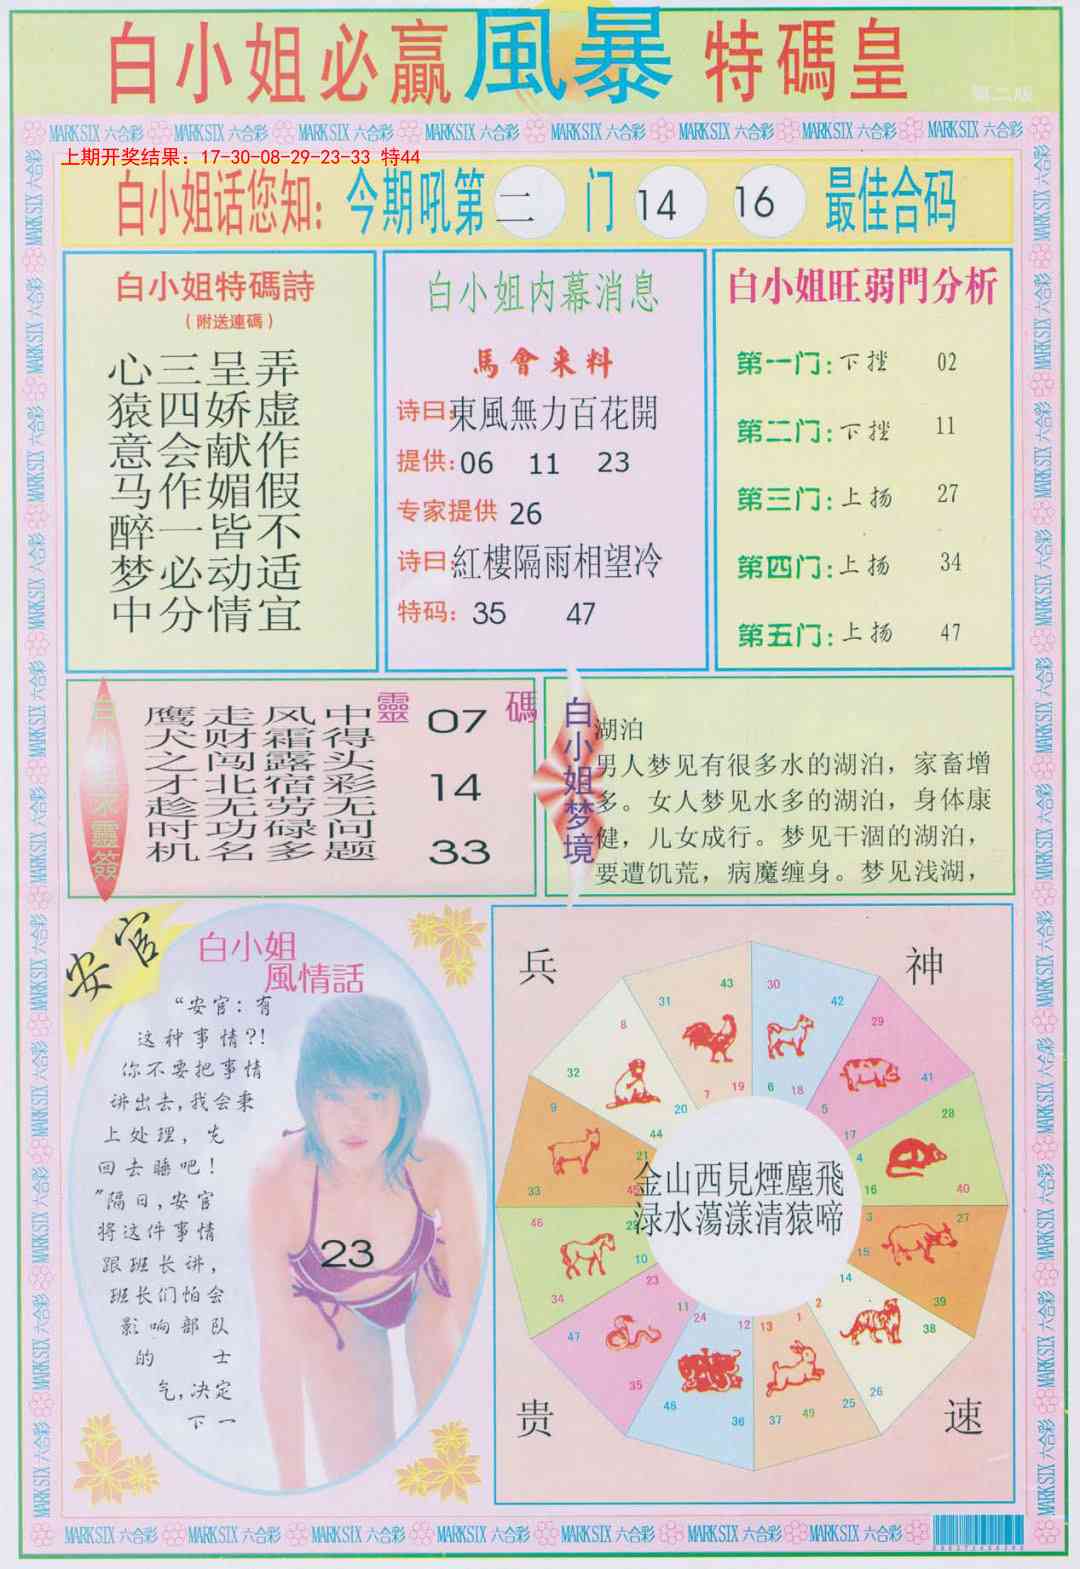 白小姐必贏風暴特碼皇
第二版
MARK SIX 六合彩 MARK SIX 六合彩 MARK SIX 六合彩 MARK SIX 六合彩 MARK SIX 六合彩 MARK SIX 六合彩 MARK SIX 六合彩 MARK SIX 六合彩
上期开奖结果：17-30-08-29-23-33 特44
白小姐话您知：今期吼第二门 14 16 最佳合码
白小姐特碼詩
（附送連碼）
心三呈弄
猿四娇虚
意会献作
马作媚假
醉一皆不
梦必动适
中分情宜
白小姐内幕消息
馬會来料
诗曰:東風無力百花開
提供:06 11 23
专家提供 26
诗曰:紅樓隔雨相望冷
特码: 35 47
白小姐旺弱門分析
第一门:下挫 02
第二门:下挫 11
第三门:上扬 27
第四门:上扬 34
第五门:上扬 47
靈簽
鹰走风中
犬财霜得
之闯露头
才北宿彩
趁无劳无
时功碌问
机名多题
靈碼
07
14
33
白小姐梦境
湖泊
男人梦见有很多水的湖泊，家畜增
多。女人梦见水多的湖泊，身体康
健，儿女成行。梦见干涸的湖泊，
要遭饥荒，病魔缠身。梦见浅湖，
安官
白小姐
風情話
“安官：有
这种事情?!
你不要把事情
讲出去,我会秉
上处理，先
回去睡吧！
”隔日,安官
将这件事情
跟班长讲,
班长们怕会
影响部队
的 士
气,决定
下一
23
兵 神
43 30
31 42
8 29
32 7 19 6 18 5 41
9 20 17 28
44 4
21
33 45 16 40
46 3 27
10 15
34 23 14 39
11 2
47 24 12 13 1 38
35 26
48 36 37 49 25
金山西見煙塵飛
渌水蕩漾清猿啼
贵 速
MARK SIX 六合彩 MARK SIX 六合彩 MARK SIX 六合彩 MARK SIX 六合彩 MARK SIX 六合彩 MARK SIX 六合彩 MARK SIX 六合彩